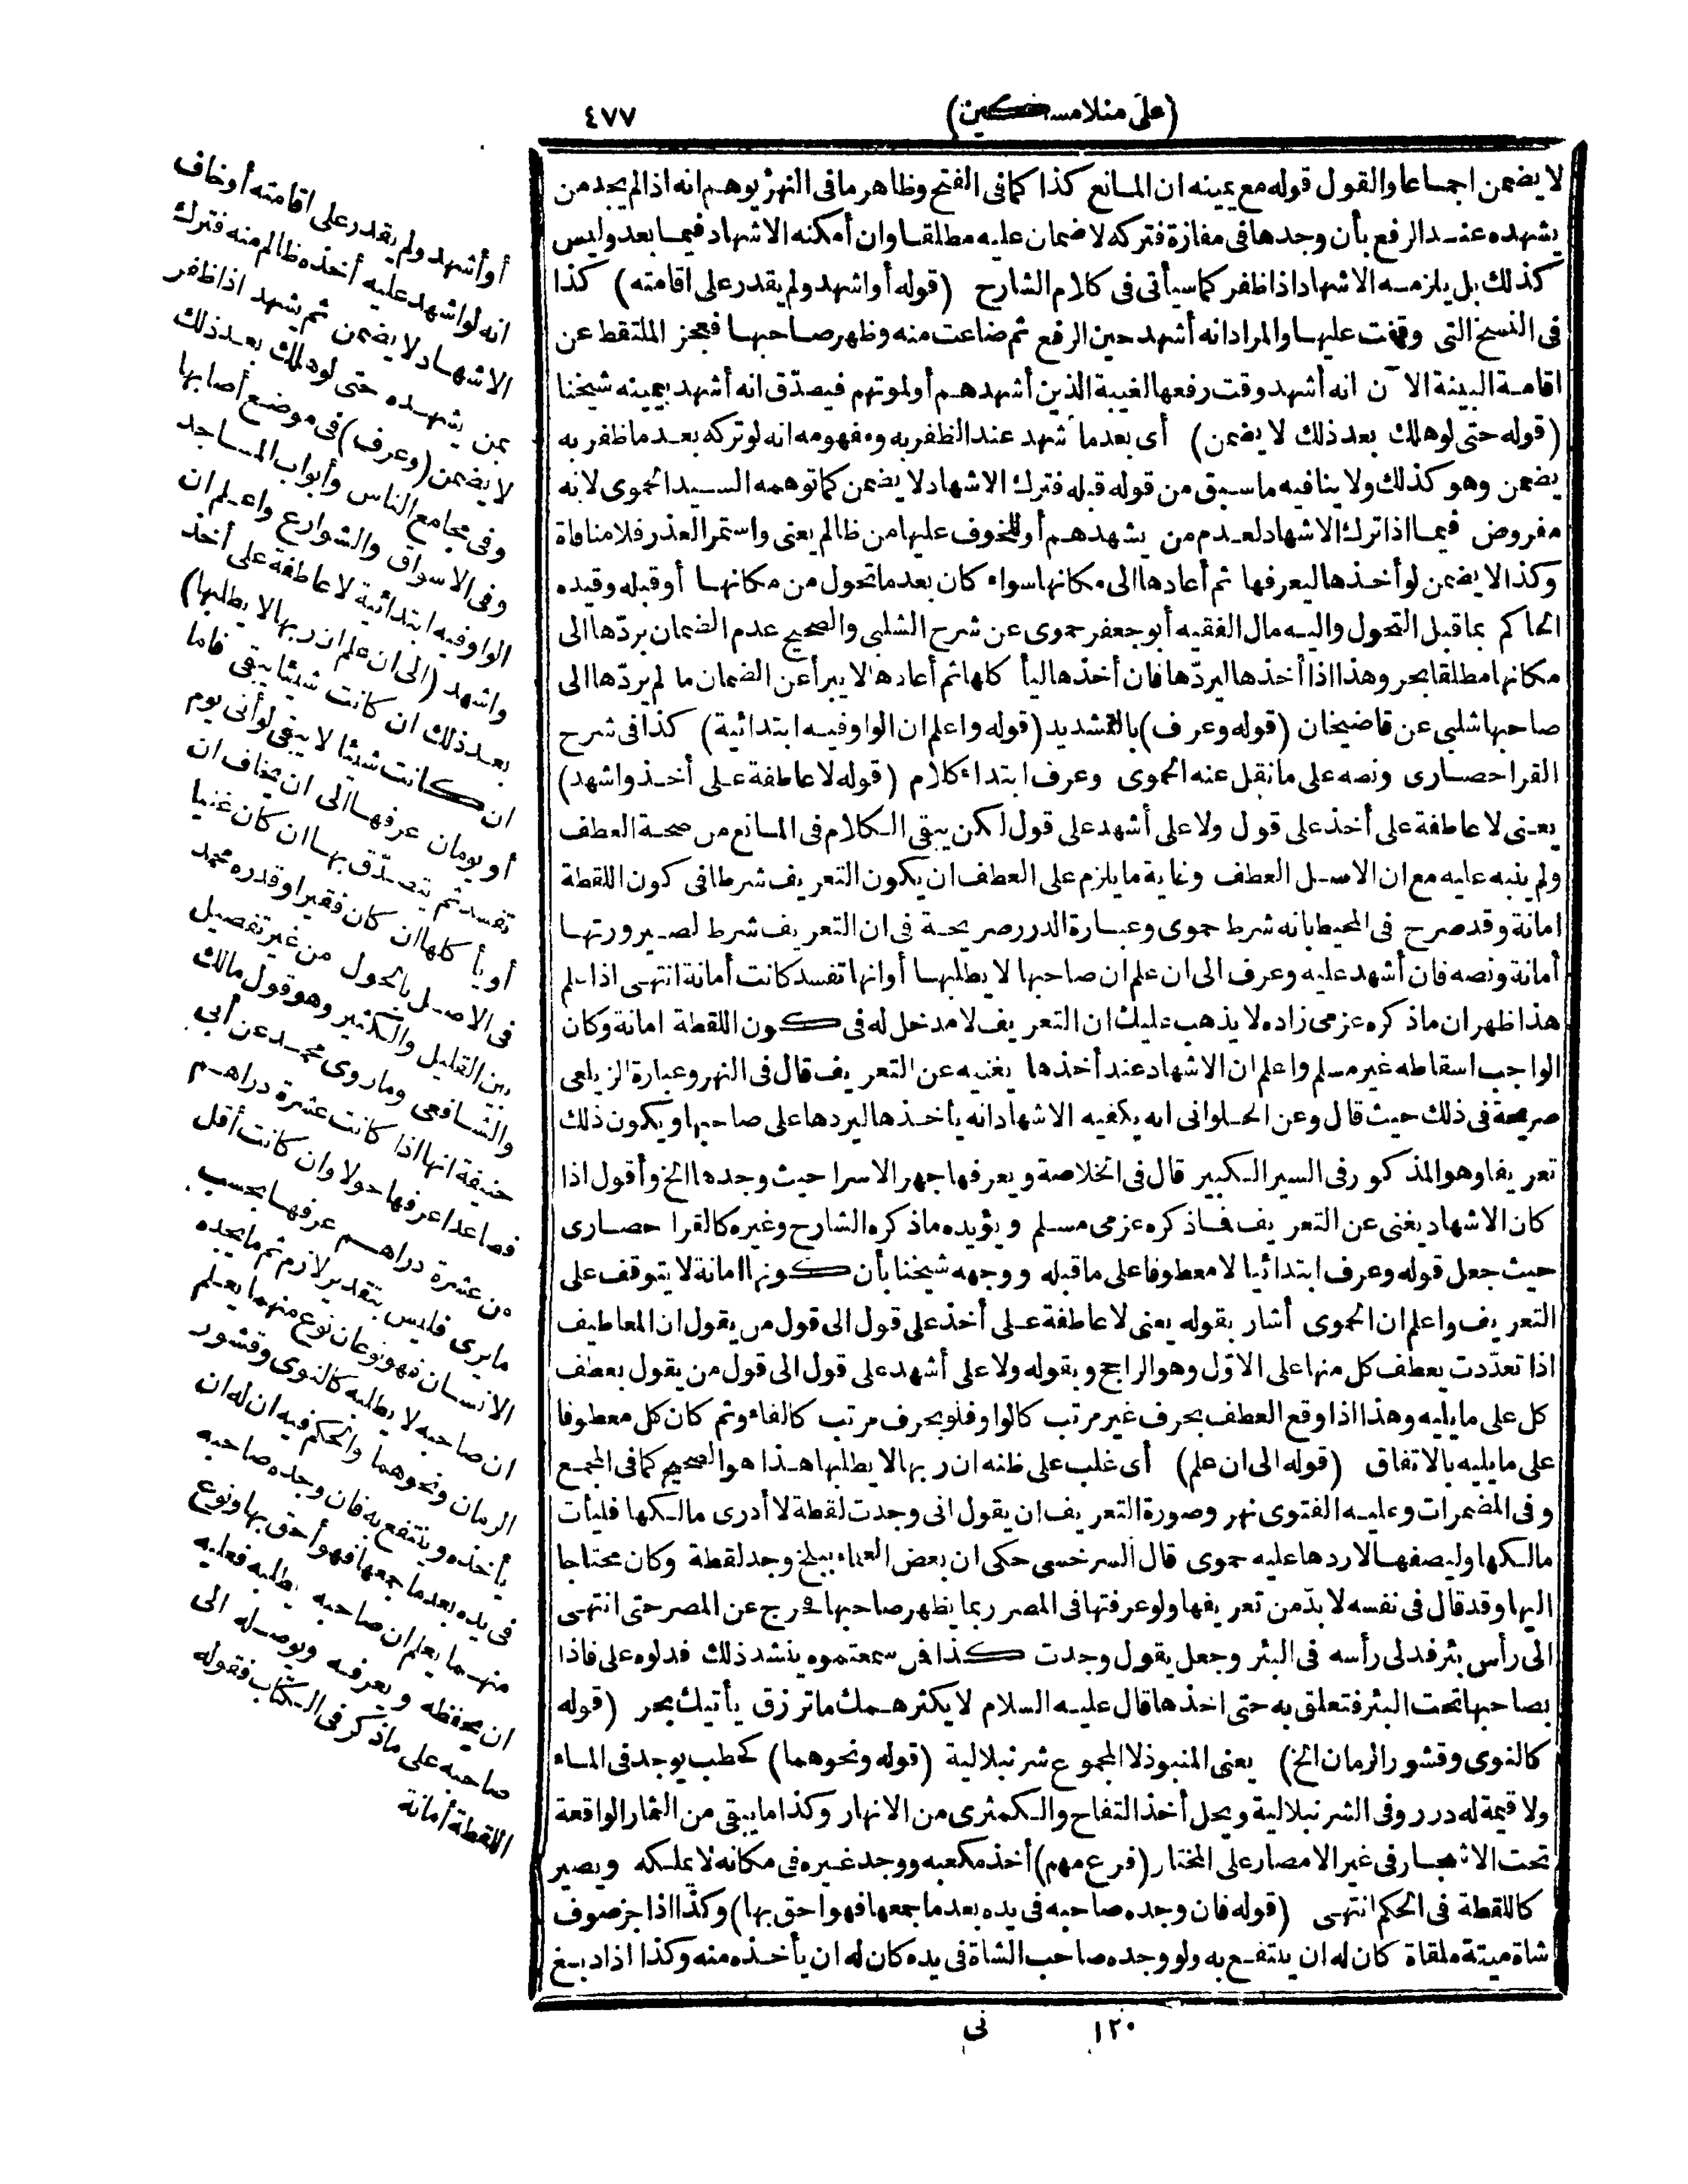 (على منلا مسكين)
٤٧٧
لا يضمن اجماعا والقول قوله مع يمينه ان المانع كذا كما فى الفتح وظاهر ما فى النهر يوهم انه اذا لم يجد من
يشهده عند الرفع بأن وجدها فى مفازة فتركه لا ضمان عليه مطلقا وان أمكنه الاشهاد فيما بعد وليس
كذلك بل يلزمه الاشهاد اذا ظفر كما سيأتى فى كلام الشارح (قوله أو اشهد ولم يقدر على اقامته) كذا
فى النسخ التى وقفت عليها والمراد انه أشهد حين الرفع ثم ضاعت منه وظهر صاحبها فعجز الملتقط عن
اقامة البينة الآن انه أشهد وقت رفعها لغيبة الذين أشهدهم أو لموتهم فيصدّق انه أشهد بيمينه شيخنا
(قوله حتى لو هلك بعد ذلك لا يضمن) أى بعدما أشهد عند الظفر به ومفهومه انه لو تركه بعد ما ظفر به
يضمن وهو كذلك ولا ينافيه ما سبق من قوله قبله فترك الاشهاد لا يضمن كما توهمه السيد الحموى لانه
مفروض فيما اذا ترك الاشهاد لعدم من يشهدهم أو للخوف عليها من ظالم يعنى واستمر العذر فلا منافاة
وكذا لا يضمن لو أخذها ليعرفها ثم أعادها الى مكانها سواء كان بعد ما تحول من مكانها أو قبله وقيده
الحاكم بما قبل التحول واليه مال الفقيه أبو جعفر حموى عن شرح الشلبى والصحيح عدم الضمان بردّها الى
مكانها مطلقا بحر وهذا اذا أخذها ليردّها فان أخذها ليأكلها ثم أعادها لا يبرأ عن الضمان ما لم يردّها الى
صاحبها شلبى عن قاضيخان (قوله وعرف) بالتشديد (قوله واعلم ان الواو فيه ابتدائية) كذا فى شرح
القرا حصارى ونصه على ما نقل عنه الحموى وعرف ابتداء كلام (قوله لا عاطفة على أخذ واشهد)
يعنى لا عاطفة على أخذ على قول ولا على أشهد على قول لكن يبقى الكلام فى المانع من صحة العطف
ولم ينبه عليه مع ان الاصل العطف وغاية ما يلزم على العطف ان يكون التعريف شرطا فى كون اللقطة
امانة وقد صرح فى المحيط بانه شرط حموى وعبارة الدرر صريحة فى ان التعريف شرط لصيرورتها
أمانة ونصه فان أشهد عليه وعرف الى ان علم ان صاحبها لا يطلبها أو انها تفسد كانت أمانة انتهى اذا علم
هذا ظهر ان ما ذكره عزمى زاده لا يذهب عليك ان التعريف لا مدخل له فى كون اللقطة امانة وكان
الواجب اسقاطه غير مسلم واعلم ان الاشهاد عند أخذها يغنيه عن التعريف قال فى النهر وعبارة الزيلعى
صريحة فى ذلك حيث قال وعن الحلوانى انه يكفيه الاشهاد انه يأخذها ليردها على صاحبها ويكون ذلك
تعريفا وهو المذكور فى السير الكبير قال فى الخلاصة ويعرفها جهرا لا سرا حيث وجدها الخ وأقول اذا
كان الاشهاد يغنى عن التعريف فما ذكره عزمى مسلم ويؤيده ما ذكره الشارح وغيره كالقرا حصارى
حيث جعل قوله وعرف ابتدائيا لا معطوفا على ما قبله ووجهه شيخنا بأن كونها امانة لا يتوقف على
التعريف واعلم ان الحموى أشار بقوله يعنى لا عاطفة على أخذ على قول الى قول من يقول ان المعاطيف
اذا تعدّدت يعطف كل منها على الاوّل وهو الراجح وبقوله ولا على أشهد على قول الى قول من يقول بعطف
كل على ما يليه وهذا اذا وقع العطف بحرف غير مرتب كالواو فلو بحرف مرتب كالفاء وثم كان كل معطوفا
على ما يليه بالاتفاق (قوله الى ان علم) أى غلب على ظنه ان ربها لا يطلبها هذا هو الصحيح كما فى المجمع
وفى المضمرات وعليه الفتوى نهر وصورة التعريف ان يقول انى وجدت لقطة لا أدرى مالكها فليأت
مالكها وليصفها لاردها عليه حموى قال السرخسى حكى ان بعض العلماء ببلخ وجد لقطة وكان محتاجا
اليها وقد قال فى نفسه لا بدّ من تعريفها ولو عرفتها فى المصر ربما يظهر صاحبها فخرج عن المصر حتى انتهى
الى رأس بئر فدلى رأسه فى البئر وجعل يقول وجدت كذا فمن سمعتموه ينشد ذلك فدلوه على فاذا
بصاحبها تحت البئر فتعلق به حتى اخذها قال عليه السلام لا يكثر همك ما ترزق يأتيك بحر (قوله
كالنوى وقشور الرمان الخ) يعنى المنبوذ لا المجموع شرنبلالية (قوله ونحوهما) كحطب يوجد فى الماء
ولا قيمة له درر وفى الشرنبلالية ويحل أخذ التفاح والكمثرى من الانهار وكذا ما يبقى من الثمار الواقعة
تحت الاشجار فى غير الامصار على المختار (فرع مهم) أخذ مكعبه ووجد غيره فى مكانه لا يملكه ويصير
كاللقطة فى الحكم انتهى (قوله فان وجده صاحبه فى يده بعد ما جمعها فهو احق بها) وكذا اذا جز صوف
شاة ميتة ملقاة كان له ان ينتفع به ولو وجده صاحب الشاة فى يده كان له ان يأخذه منه وكذا اذا دبغ
أو أشهد ولم يقدر على اقامته أو خاف
انه لو اشهد عليه أخذه ظالم منه فترك
الاشهاد لا يضمن ثم يشهد اذا ظفر
بمن يشهده حتى لو هلك بعد ذلك
لا يضمن (وعرف) فى موضع أصابها
وفى مجامع الناس وأبواب المساجد
وفى الاسواق والشوارع واعلم ان
الواو فيه ابتدائية لا عاطفة على أخذ
واشهد (الى ان علم ان ربها لا يطلبها)
بعد ذلك ان كانت شيئا يبقى فاما
ان كانت شيئا لا يبقى لو أنى يوم
أو يومان عرفها الى ان يخاف ان
تفسد ثم يتصدّق بها ان كان غنيا
أو يأكلها ان كان فقيرا وقدره محمد
فى الاصل بالحول من غير تفصيل
بين القليل والكثير وهو قول مالك
والشافعى وما روى محمد عن أبى
حنيفة انها اذا كانت عشرة دراهم
فصاعدا عرفها حولا وان كانت أقل
من عشرة دراهم عرفها بحسب
ما يرى فليس بتقدير لازم ثم ما يجده
الانسان فهو نوعان نوع منهما يعلم
ان صاحبه لا يطلبه كالنوى وقشور
الرمان ونحوهما والحكم فيه ان له ان
يأخذه وينتفع به فان وجده صاحبه
فى يده بعد ما جمعها فهو أحق بها ونوع
منهما يعلم ان صاحبه يطلبه فعليه
ان يحفظه ويعرفه ويوصله الى
صاحبه على ما ذكر فى الكتاب فقوله
اللقطة أمانة
١٢٠
نى